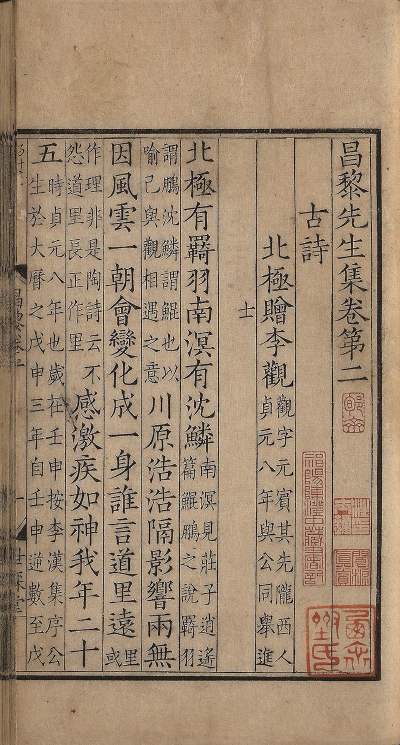 昌黎先生集卷第二
古詩
北極贈李觀 觀字元賓其先隴西人貞元八年與公同舉進
士
北極有羇羽南溟有沈鱗 南溟見莊子逍遙篇鯤鵬之說羇羽
謂鵬沈鱗謂鯤也以喻己與觀相遇之意 川原浩浩隔影響兩無
因風雲一朝會變化成一身誰言道里遠 里或
作理非是陶詩云不怨道里長正作里 感激疾如神我年二十
五 時貞元八年也歲在壬申按李漢集序公生於大曆之戊申三年自壬申逆數至戊
祁陽陳澄中藏書記